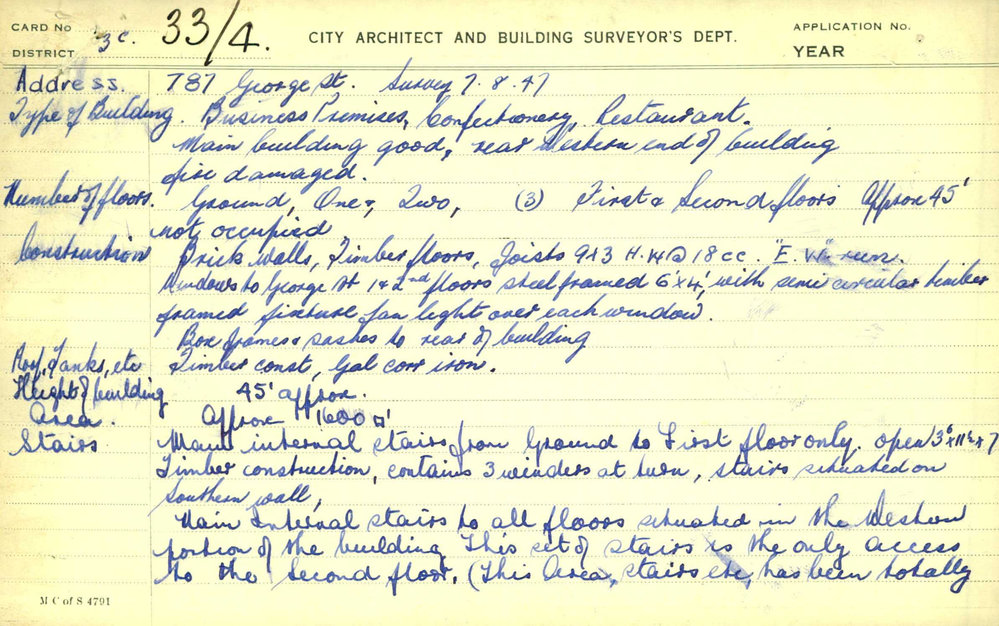 CARD No 33/4. CITY ARCHITECT AND BUILDING SURVEYOR'S DEPT. APPLICATION No.
DISTRICT 3c. YEAR
Address. 787 George St. Survey 7.8.47
Type of Building. Business Premises, Confectionery, Restaurant.
Main building good, rear Western end of building
fire damaged.
Number of floors. Ground, One &, Two, (3) First & Second floors Approx 45'
not occupied
Construction Brick walls, Timber floors, Joists 9x3 H.W @ 18 cc. "E. W" run.
Windows to George St 1 & 2nd floors steel framed 6'x4', with semi circular timber
framed fixture fan light over each window.
Box frames & sashes to rear of building
Roof, Tanks, etc Timber const, Gal corr iron.
Height of building 45' approx.
Area. Approx 1600 □'
Stairs Main internal stairs from Ground to First floor only. open 3'6" x 11½ x 7
Timber construction, contains 3 winders at turn, stairs situated on
Southern wall,
Main Internal stairs to all floors situated in the Western
portion of the building This set of stairs is the only access
to the Second floor. (This Area, stairs etc, has been totally
M C of S 4791